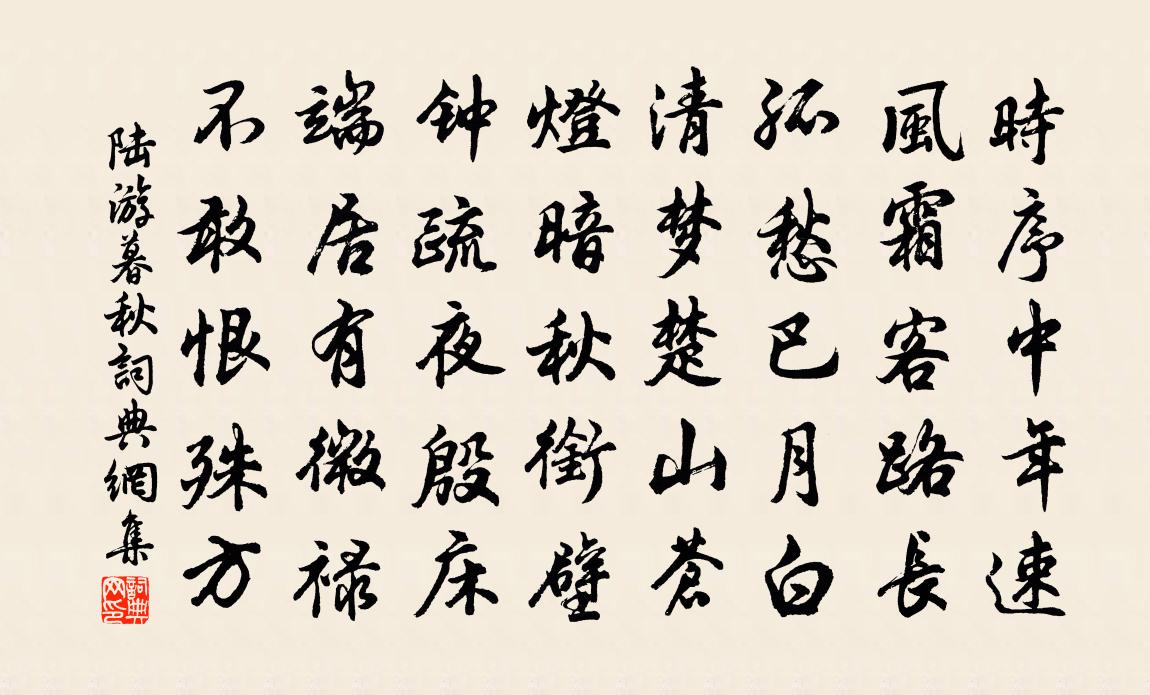 時序中年速
風霜客路長
孤愁巴月白
清梦楚山蒼
燈暗秋銜壁
钟疏夜殷床
端居有微禄
不敢恨殊方
陆游暮秋詞典網集
詞典网印